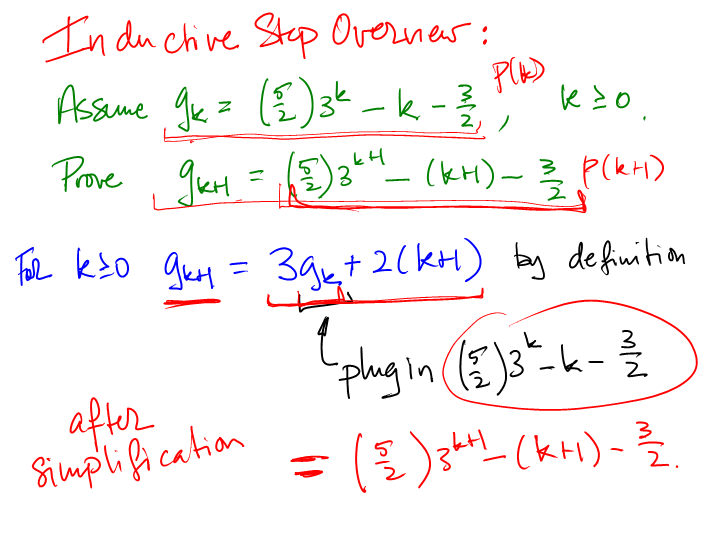 Inductive Step Overview:
P(k)
Assume g_k = (5/2)3^k - k - 3/2, k ≥ 0.
Prove g_{k+1} = (5/2)3^{k+1} - (k+1) - 3/2 P(k+1)
For k≥0 g_{k+1} = 3g_k + 2(k+1) by definition
plug in (5/2)3^k - k - 3/2
after
simplification = (5/2)3^{k+1} - (k+1) - 3/2.